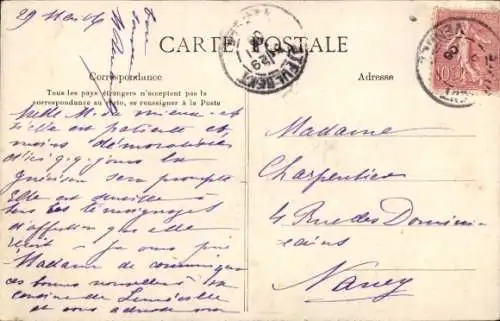 29 
CARTE POSTALE
Correspondance
Adresse
Tous les pays étrangers n'acceptent pas la
correspondance au recto, se renseigner à la Poste
Melle M. va mieux et
si elle est patiente et
moins démoralisée
d'ici q.q. jours la
guérison sera prompte
Elle est sensible à
tous les témoignages
d'affection que elle
reçoit - Je vous prie
Madame de communiquer
ces bonnes nouvelles à la
cousine de Lunéville
et vous adresse mon
Madame
Charpentier
4 Rue des Domini-
cains
Nancy